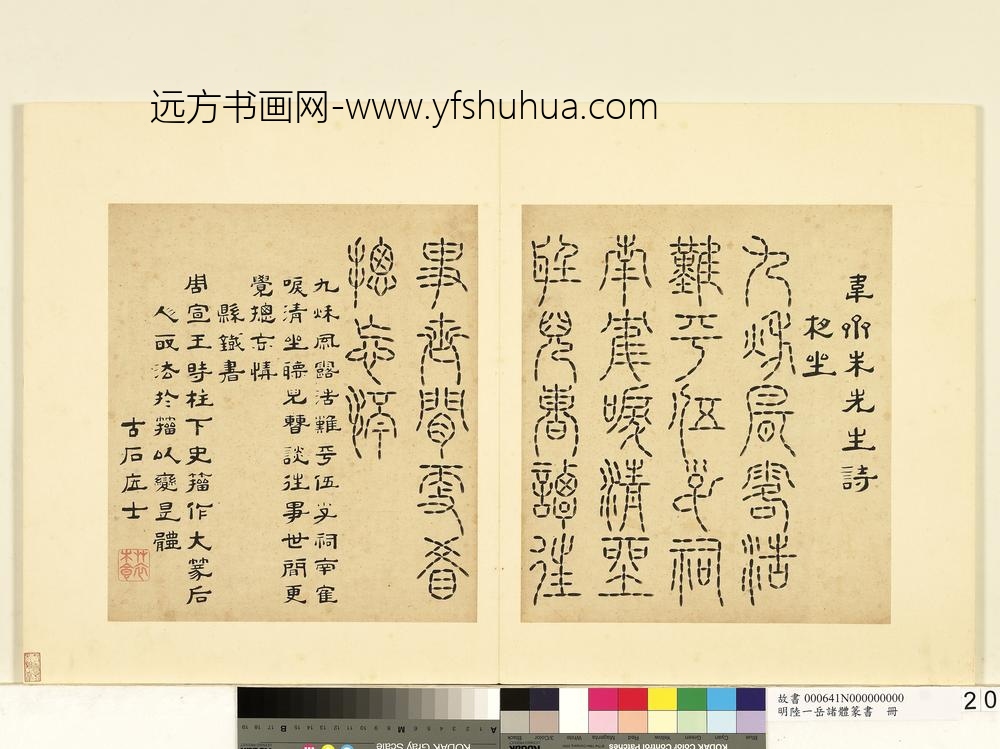 远方书画网-www.yfshuhua.com
韋齋朱先生詩
夜坐
九秋風露浩
難平伍子祠
南寉唳清聖
聽兒曹談往
事世間更看
摠忘情
九秋風露浩難平伍子祠南寉
唳清坐聽兒曹談往事世間更
覺摠忘情
縣鍼書
周宣王時柱下史籀作大篆后
人取法於籀以變是體
古石居士
故書 000641N000000000
明陸一岳諸體篆書 冊
20
Blue
Cyan
Green
Yellow
Red
Magenta
White
3/Color
Black
KODAK Color Control Patches
KODAK Gray Scale
A 1 2 3 4 5 6 M 8 9 10 11 12 13 14 15 B 17 18 19